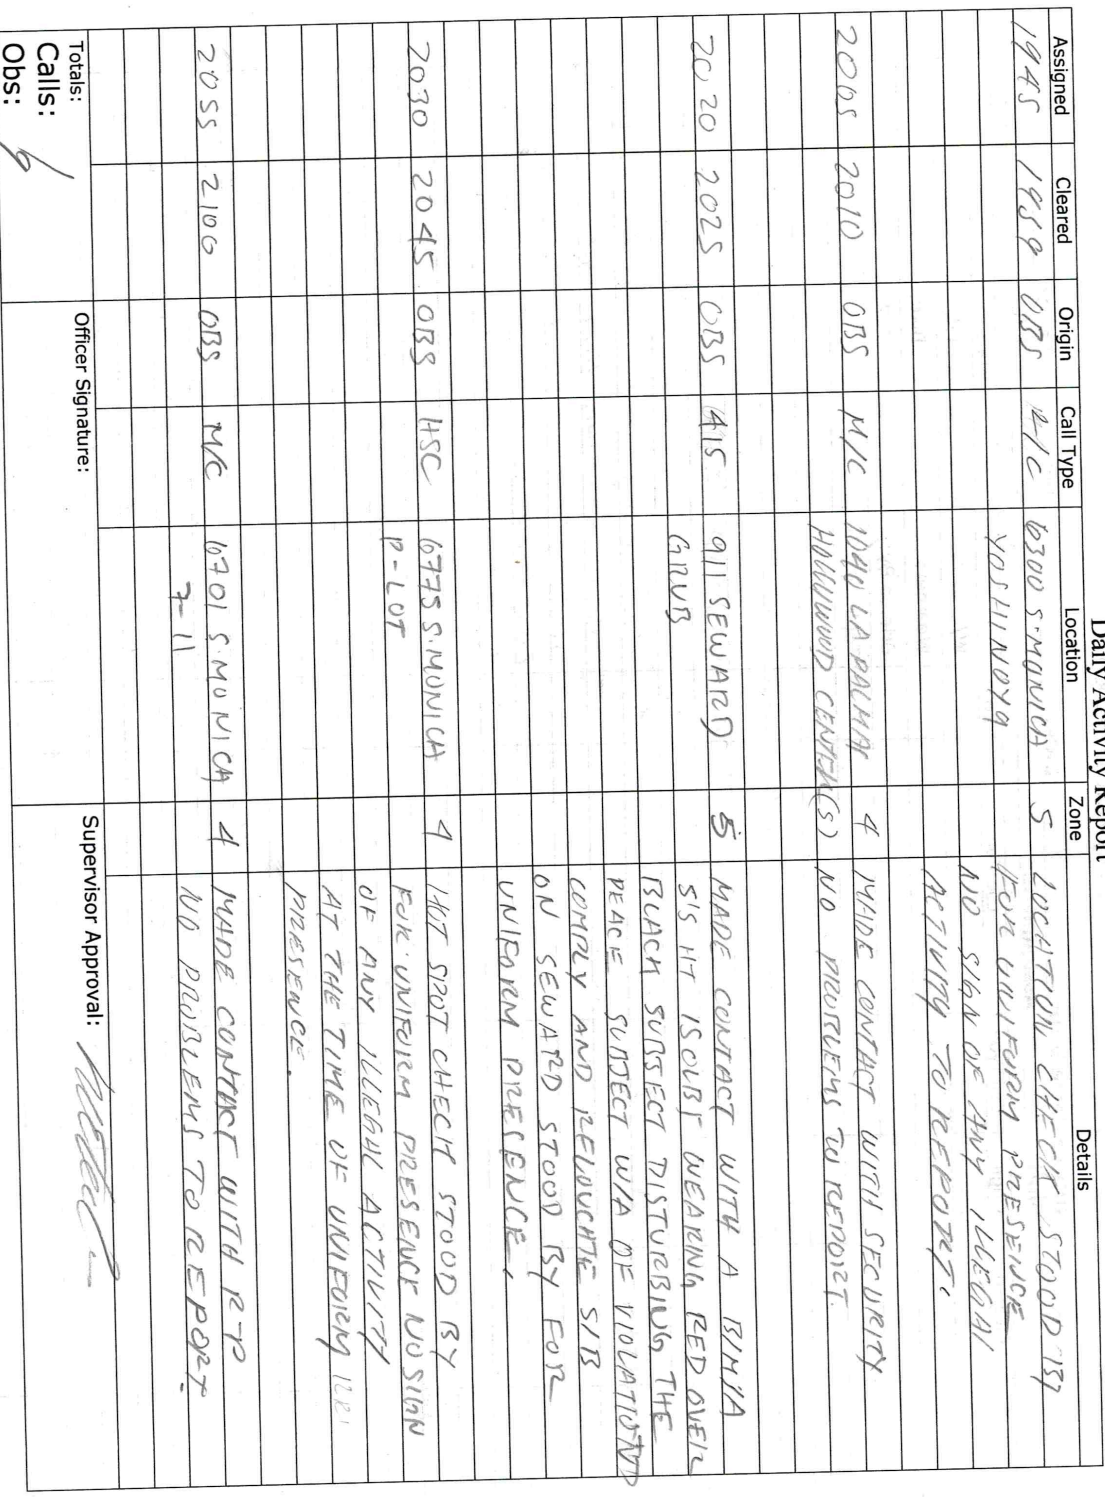 Daily Activity Report
Assigned Cleared Origin Call Type Location Zone Details
1945 1959 OBS L/C 6300 S. MONICA 5 LOCATION CHECK STOOD BY
YOSHINOYA FOR UNIFORM PRESENCE
NO SIGN OF ANY ILLEGAL
ACTIVITY TO REPORT.
2005 2010 OBS M/C LA PALMA 4 MADE CONTACT WITH SECURITY
HOLLYWOOD CENTER(S) NO PROBLEMS TO REPORT.
2020 2025 OBS 415 911 SEWARD 5 MADE CONTACT WITH A B/M/A
GRVB 5'5 HT 150LBS WEARING RED OVER
BLACK SUBJECT DISTURBING THE
PEACE SUBJECT W/A OF VIOLATION D
COMPLY AND RELOUCATE S/B
ON SEWARD STOOD BY FOR
UNIFORM PRESENCE.
2030 2045 OBS HSC 6775 S. MONICA 4 HOT SPOT CHECK STOOD BY
P-LOT FOR UNIFORM PRESENCE NO SIGN
OF ANY ILLEGAL ACTIVITY
AT THE TIME OF UNIFORM
PRESENCE.
2055 2100 OBS M/C 6701 S. MONICA 4 MADE CONTACT WITH R-P
7-11 NO PROBLEMS TO REPORT.
Totals: Officer Signature: Supervisor Approval:
Calls:
Obs: 6